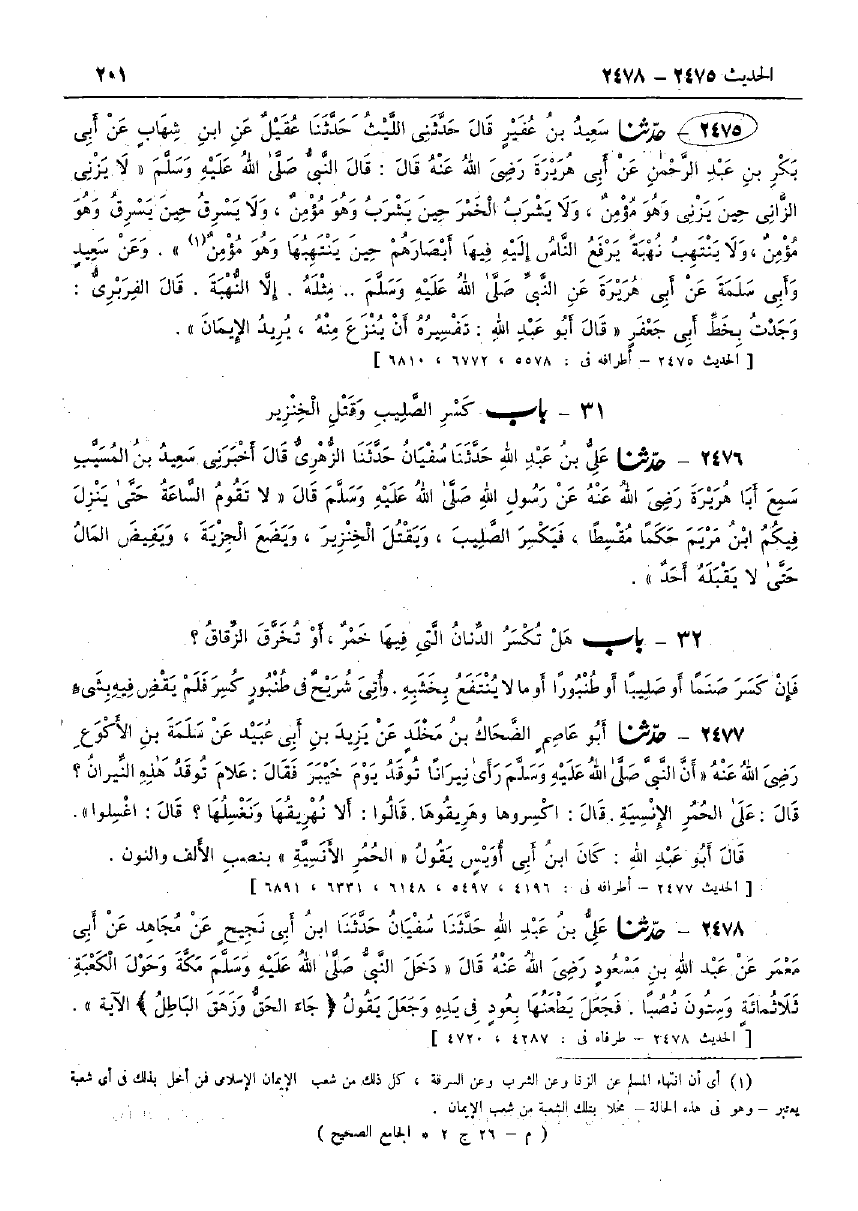 الحديث ٢٤٧٥ – ٢٤٧٨ ٢٠١
٢٤٧٥ – حدّثنا سَعِيدُ بنُ عُفَيرٍ قَالَ حَدَّثَنِى اللَّيْثُ حَدَّثَنَا عُقَيلٌ عَنِ ابنِ شِهَابٍ عَنْ أَبِى
بَكْرِ بنِ عَبْدِ الرَّحْمٰنِ عَنْ أَبِى هُرَيْرَةَ رَضِىَ اللهُ عَنْهُ قَالَ : قَالَ النَّبِىُّ صَلَّىٰ اللهُ عَلَيْهِ وَسَلَّمَ « لَا يَزْنِى
الزَّانِى حِينَ يَزْنِى وَهُوَ مُؤْمِنٌ ، وَلَا يَشْرَبُ الْخَمْرَ حِينَ يَشْرَبُ وَهُوَ مُؤْمِنٌ ، وَلَا يَسْرِقُ حِينَ يَسْرِقُ وَهُوَ
مُؤْمِنٌ ، وَلَا يَنْتَهِبُ نُهْبَةً يَرْفَعُ النَّاسُ إِلَيْهِ فِيهَا أَبْصَارَهُمْ حِينَ يَنْتَهِبُهَا وَهُوَ مُؤْمِنٌ(١) » . وَعَنْ سَعِيدٍ
وَأَبِى سَلَمَةَ عَنْ أَبِى هُرَيْرَةَ عَنِ النَّبِىِّ صَلَّىٰ اللهُ عَلَيْهِ وَسَلَّمَ .. مِثْلَهُ . إِلَّا النُّهْبَةَ . قَالَ الفِرَبْرِىُّ :
وَجَدْتُ بِخَطِّ أَبِى جَعْفَرٍ « قَالَ أَبُو عَبْدِ اللهِ : تَفْسِيرُهُ أَنْ يُنْزَعَ مِنْهُ ، يُرِيدُ الإِيمَانَ » .
[ الحديث ٢٤٧٥ – أطرافه فى : ٥٥٧٨ ، ٦٧٧٢ ، ٦٨١٠ ]
٣١ – باب كَسْرِ الصَّلِيبِ وَقَتْلِ الْخِنْزِيرِ
٢٤٧٦ – حدّثنا عَلىُّ بنُ عَبْدِ اللهِ حَدَّثَنَا سُفْيَانُ حَدَّثَنَا الزُّهْرِىُّ قَالَ أَخْبَرَنِى سَعِيدُ بنُ المُسَيَّبِ
سَمِعَ أَبَا هُرَيْرَةَ رَضِىَ اللهُ عَنْهُ عَنْ رَسُولِ اللهِ صَلَّىٰ اللهُ عَلَيْهِ وَسَلَّمَ قَالَ « لا تَقُومُ السَّاعَةُ حَتَّىٰ يَنْزِلَ
فِيكُمُ ابْنُ مَرْيَمَ حَكَمًا مُقْسِطًا ، فَيَكْسِرَ الصَّلِيبَ ، وَيَقْتُلَ الْخِنْزِيرَ ، وَيَضَعَ الْجِزْيَةَ ، وَيَفِيضَ المَالُ
حَتَّىٰ لا يَقْبَلَهُ أَحَدٌ » .
٣٢ – باب هَلْ تُكْسَرُ الدِّنانُ الَّتِي فِيهَا خَمْرٌ ، أَوْ تُخَرَّقُ الزِّقَاقُ ؟
فَإِنْ كَسَرَ صَنَمًا أَو صَلِيبًا أَو طُنْبُورًا أَو ما لا يُنْتَفَعُ بِخَشَبِهِ . وأُتِىَ شُرَيْحٌ فى طُنْبُورٍ كُسِرَ فَلَمْ يَقْضِ فِيهِ بِشَىءٍ
٢٤٧٧ – حدّثنا أَبُو عَاصِمٍ الضَّحَاكُ بنُ مَخْلَدٍ عَنْ يَزِيدَ بنِ أَبِى عُبَيْدٍ عَنْ سَلَمَةَ بنِ الأَكْوَعِ
رَضِىَ اللهُ عَنْهُ « أَنَّ النَّبِىَّ صَلَّىٰ اللهُ عَلَيْهِ وَسَلَّمَ رَأَىٰ نِيرَانًا تُوقَدُ يَوْمَ خَيْبَرَ فَقَالَ : عَلامَ تُوقَدُ هَٰذِهِ النِّيرانُ ؟
قَالَ : عَلَىٰ الحُمُرِ الإِنْسِيَّةِ . قَالَ : اكْسِروها وهَرِيقُوها . قَالُوا : أَلا نُهْرِيقُهَا وَنَغْسِلُهَا ؟ قَالَ : اغْسِلوا » .
قَالَ أَبُو عَبْدِ اللهِ : كَانَ ابنُ أَبِى أُوَيْسٍ يَقُولُ « الحُمُرِ الأَنَسِيَّةِ » بنصبِ الألف والنون .
[ الحديث ٢٤٧٧ – أطرافه فى : ٤١٩٦ ، ٥٤٩٧ ، ٦١٤٨ ، ٦٣٣١ ، ٦٨٩١ ]
٢٤٧٨ – حدّثنا عَلىُّ بنُ عَبْدِ اللهِ حَدَّثَنَا سُفْيَانُ حَدَّثَنَا ابنُ أَبِى نَجِيحٍ عَنْ مُجَاهِدٍ عَنْ أَبِى
مَعْمَرٍ عَنْ عَبْدِ اللهِ بنِ مَسْعُودٍ رَضِىَ اللهُ عَنْهُ قَالَ « دَخَلَ النَّبِىُّ صَلَّىٰ اللهُ عَلَيْهِ وَسَلَّمَ مَكَّةَ وَحَوْلَ الْكَعْبَةِ
ثَلَاثُمائَةٍ وَسِتُّونَ نُصُبًا . فَجَعَلَ يَطْعَنُهَا بِعُودٍ فى يَدِهِ وَجَعَلَ يَقُولُ ﴿ جَاءَ الحَقُّ وَزَهَقَ البَاطِلُ ﴾ الآيةَ » .
[ الحديث ٢٤٧٨ – طرفاه فى : ٤٢٨٧ ، ٤٧٢٠ ]
(١) أى أن انتهاء المسلم عن الزنا وعن الشرب وعن السرقة ، كل ذلك من شعب الإيمان الإسلامى فمن أخل بذلك فى أى شعبة
يعتبر – وهو فى هذه الحالة – مخلا بتلك الشعبة من شعب الإيمان .
( م – ٢٦ ج ٢ * الجامع الصحيح )